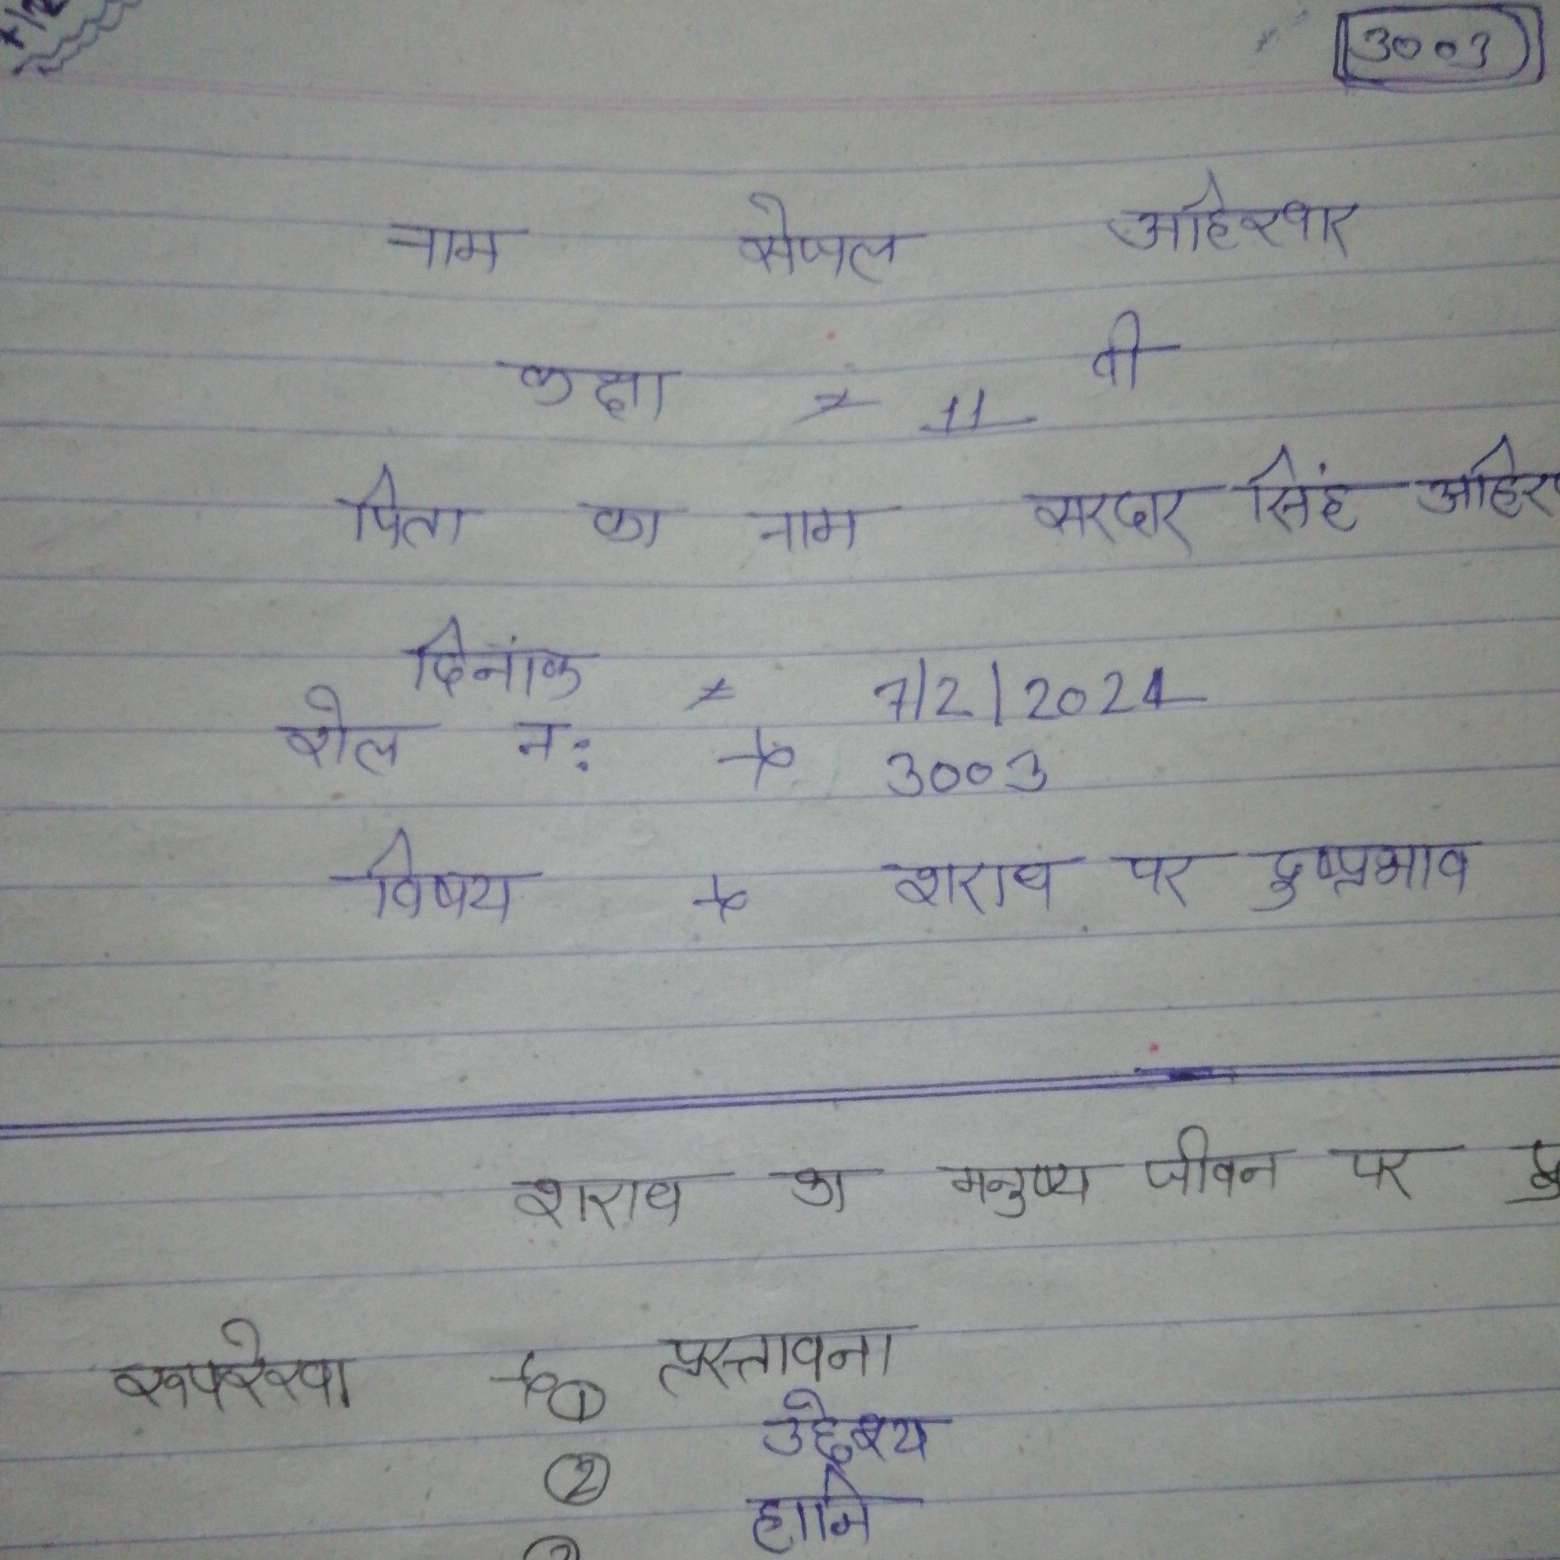 3003
नाम सेजल अहिरवार
कक्षा 11 वी
पिता का नाम सरदार सिंह
दिनांक 7/2/2024
रोल न: → 3003
विषय → शराब पर दुष्प्रभाव
शराब का मनुष्य जीवन पर
रूपरेखा → ① प्रस्तावना
② उद्देश्य
हानि